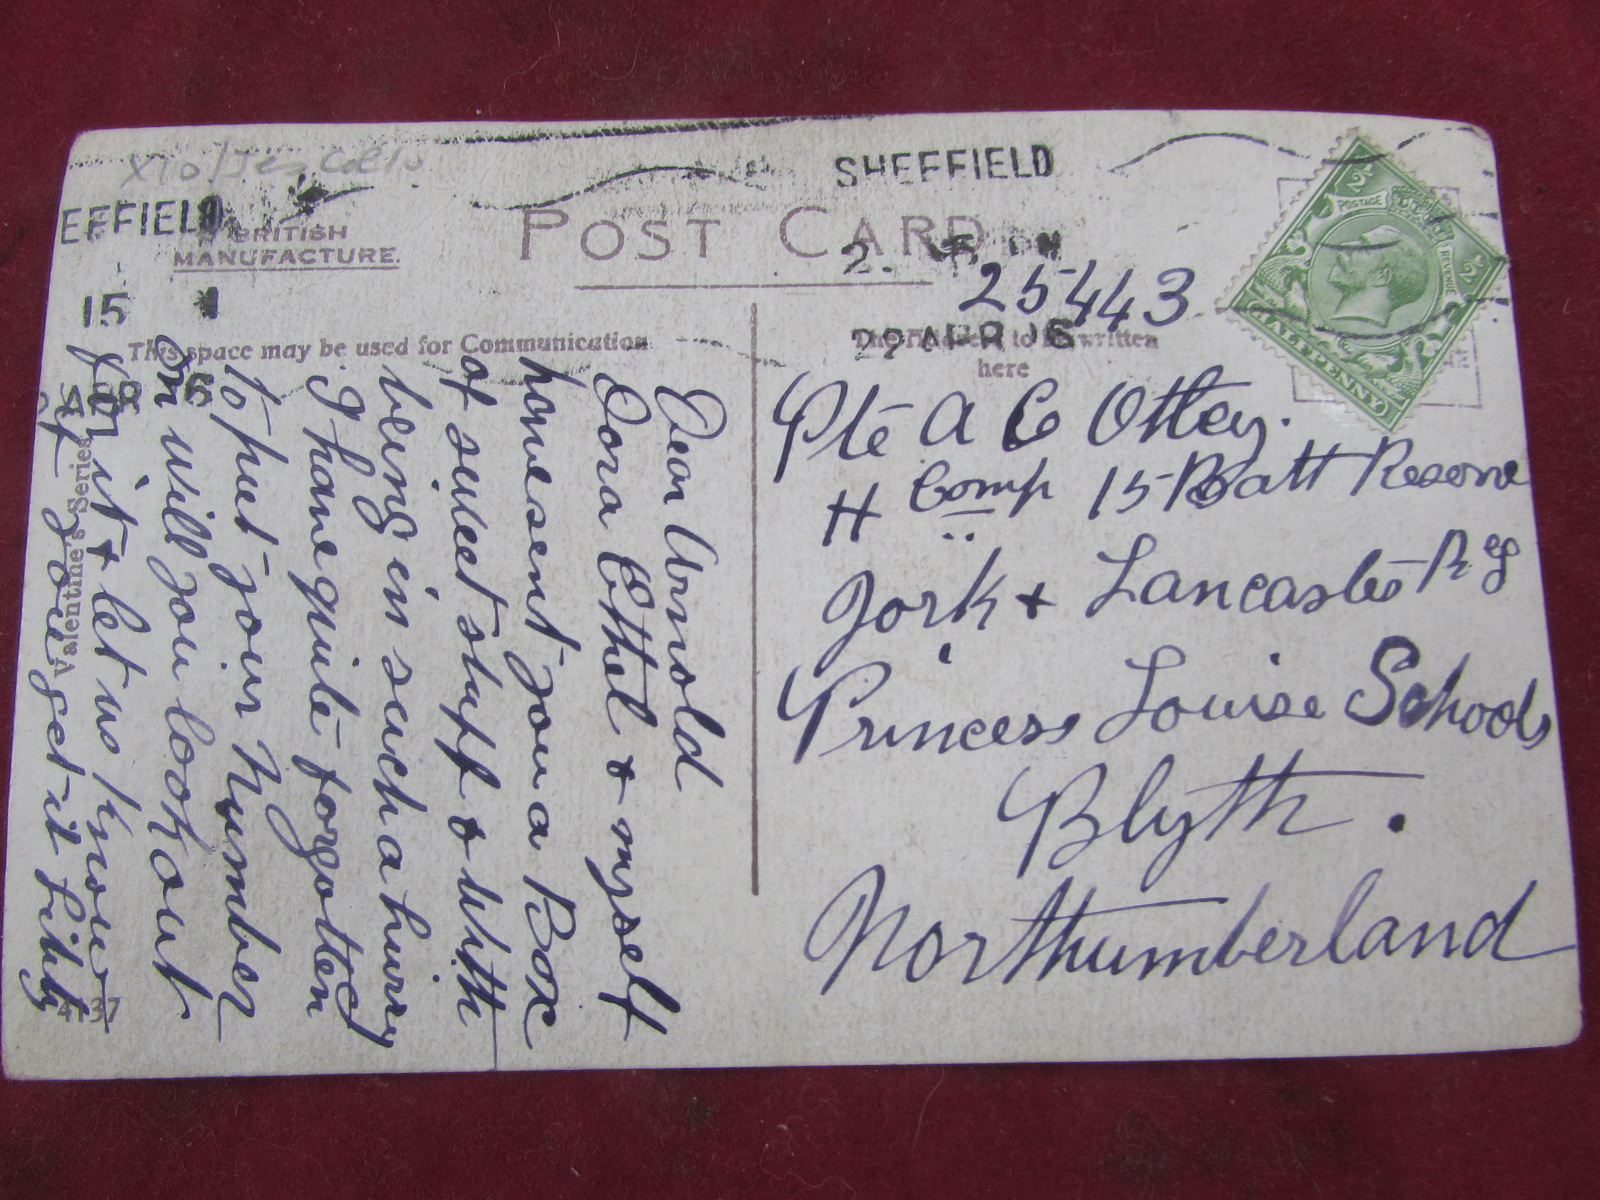 SHEFFIELD
EFFIELD
BRITISH
MANUFACTURE.
POST CARD
25443
15
22 APR 16
This space may be used for Communication
The Address to be written
here
POSTAGE
REVENUE
HALFPENNY
Dear Arnold
Dora Ethel & myself
have sent you a Box
of sweet stuff & with
being in such a hurry
I have quite forgotten
to put your Number
on will you look out
for it & let us know
if you get it
Valentine's Series
4137
Pte A C Ottey.
H Comp 15 Batt Reserve
York & Lancaster Reg
Princess Louise Schools
Blyth.
Northumberland